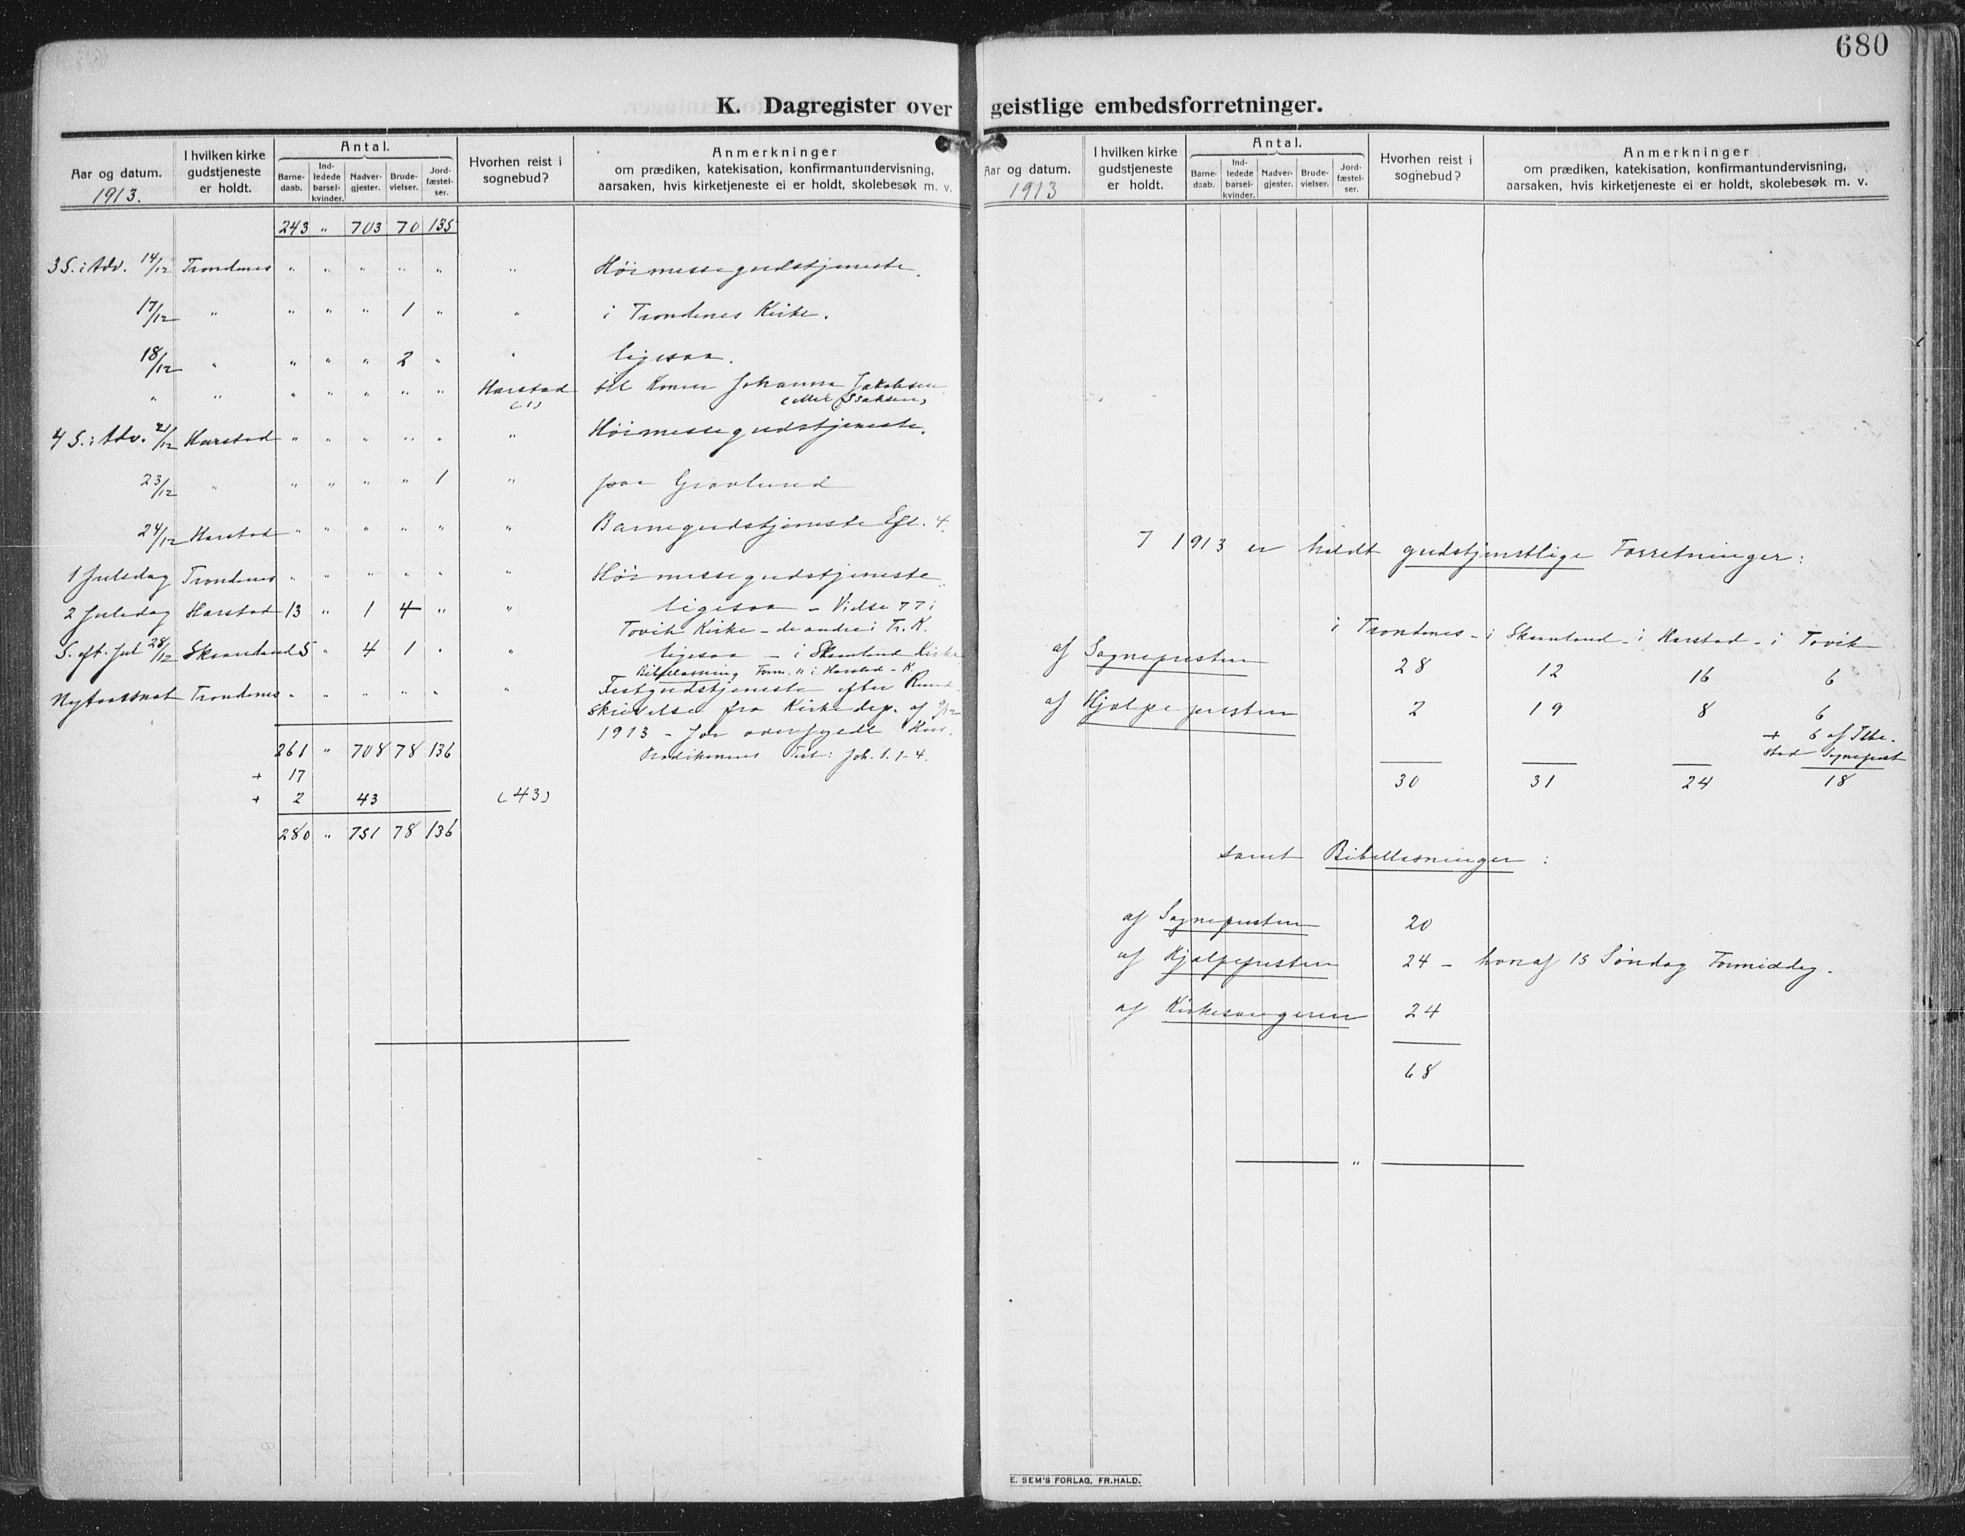 680
K. Dagregister over geistlige embedsforretninger.
Aar og datum.
1913.
I hvilken kirke gudstjeneste er holdt.
Antal.
Barnedaab.
Indledede barselkvinder.
Nadvergjester.
Brudevielser.
Jordfæstelser.
Hvorhen reist i sognebud?
Anmerkninger
om prædiken, katekisation, konfirmantundervisning,
aarsaken, hvis kirketjeneste ei er holdt, skolebesøk m. v.
243 " 703 70 135
3 S. i Adv. 14/12 Trondenes " " " " " " Höimessegudstjeneste.
17/12 " " " " 1 " " i Trondenes Kirke.
18/12 " " " " 2 " " ligesaa.
" " " " " " " Harstad til Konen Johanna Jakobsen
(1) (eller Isaksen)
4 S. i Adv. 21/12 Harstad " " " " " " Höimessegudstjeneste.
23/12 " " " " " 1 " paa Gravlund
24/12 Harstad " " " " " " Barnegudstjeneste Eft. 4.
1 Juledag Trondenes " " " " " " Höimessegudstjeneste
2 Juledag Harstad 13 " 1 4 " " ligesaa – Vielse 77 i
Tovik Kirke – de andre i Tr. K.
S. eft. Jul 28/12 Skaanland 5 " 4 1 " " ligesaa – i Skaanland Kirke
Bibellæsning Form. " i Harstad – K.
Nytaarsnat Trondenes " " " " " " Festgudstjeneste efter Rund-
skrivelse fra Kirkedep. af 9/12
1913 – for overfyldt Hus.
261 " 708 78 136 Prædikenens Text: Joh. 1. 1-4.
+ 17
+ 2 43 (43)
280 " 751 78 136
Aar og datum.
1913
I hvilken kirke gudstjeneste er holdt.
Antal.
Barnedaab.
Indledede barselkvinder.
Nadvergjester.
Brudevielser.
Jordfæstelser.
Hvorhen reist i sognebud?
Anmerkninger
om prædiken, katekisation, konfirmantundervisning,
aarsaken, hvis kirketjeneste ei er holdt, skolebesøk m. v.
I 1913 er holdt gudstjenstlige Forretninger:
i Trondenes – i Skaanland – i Harstad – i Tovik
af Sognepresten 28 12 16 6
af Hjælpepresten 2 19 8 6
+ 6 af Ibe-
stad Sognepræst
30 31 24 18
samt Bibellæsninger:
af Sognepresten 20
af Hjælpepresten 24 – hvoraf 15 Söndag Formiddag.
af Kirkesangeren 24
68
"
E. SEM'S FORLAG, FR.HALD.